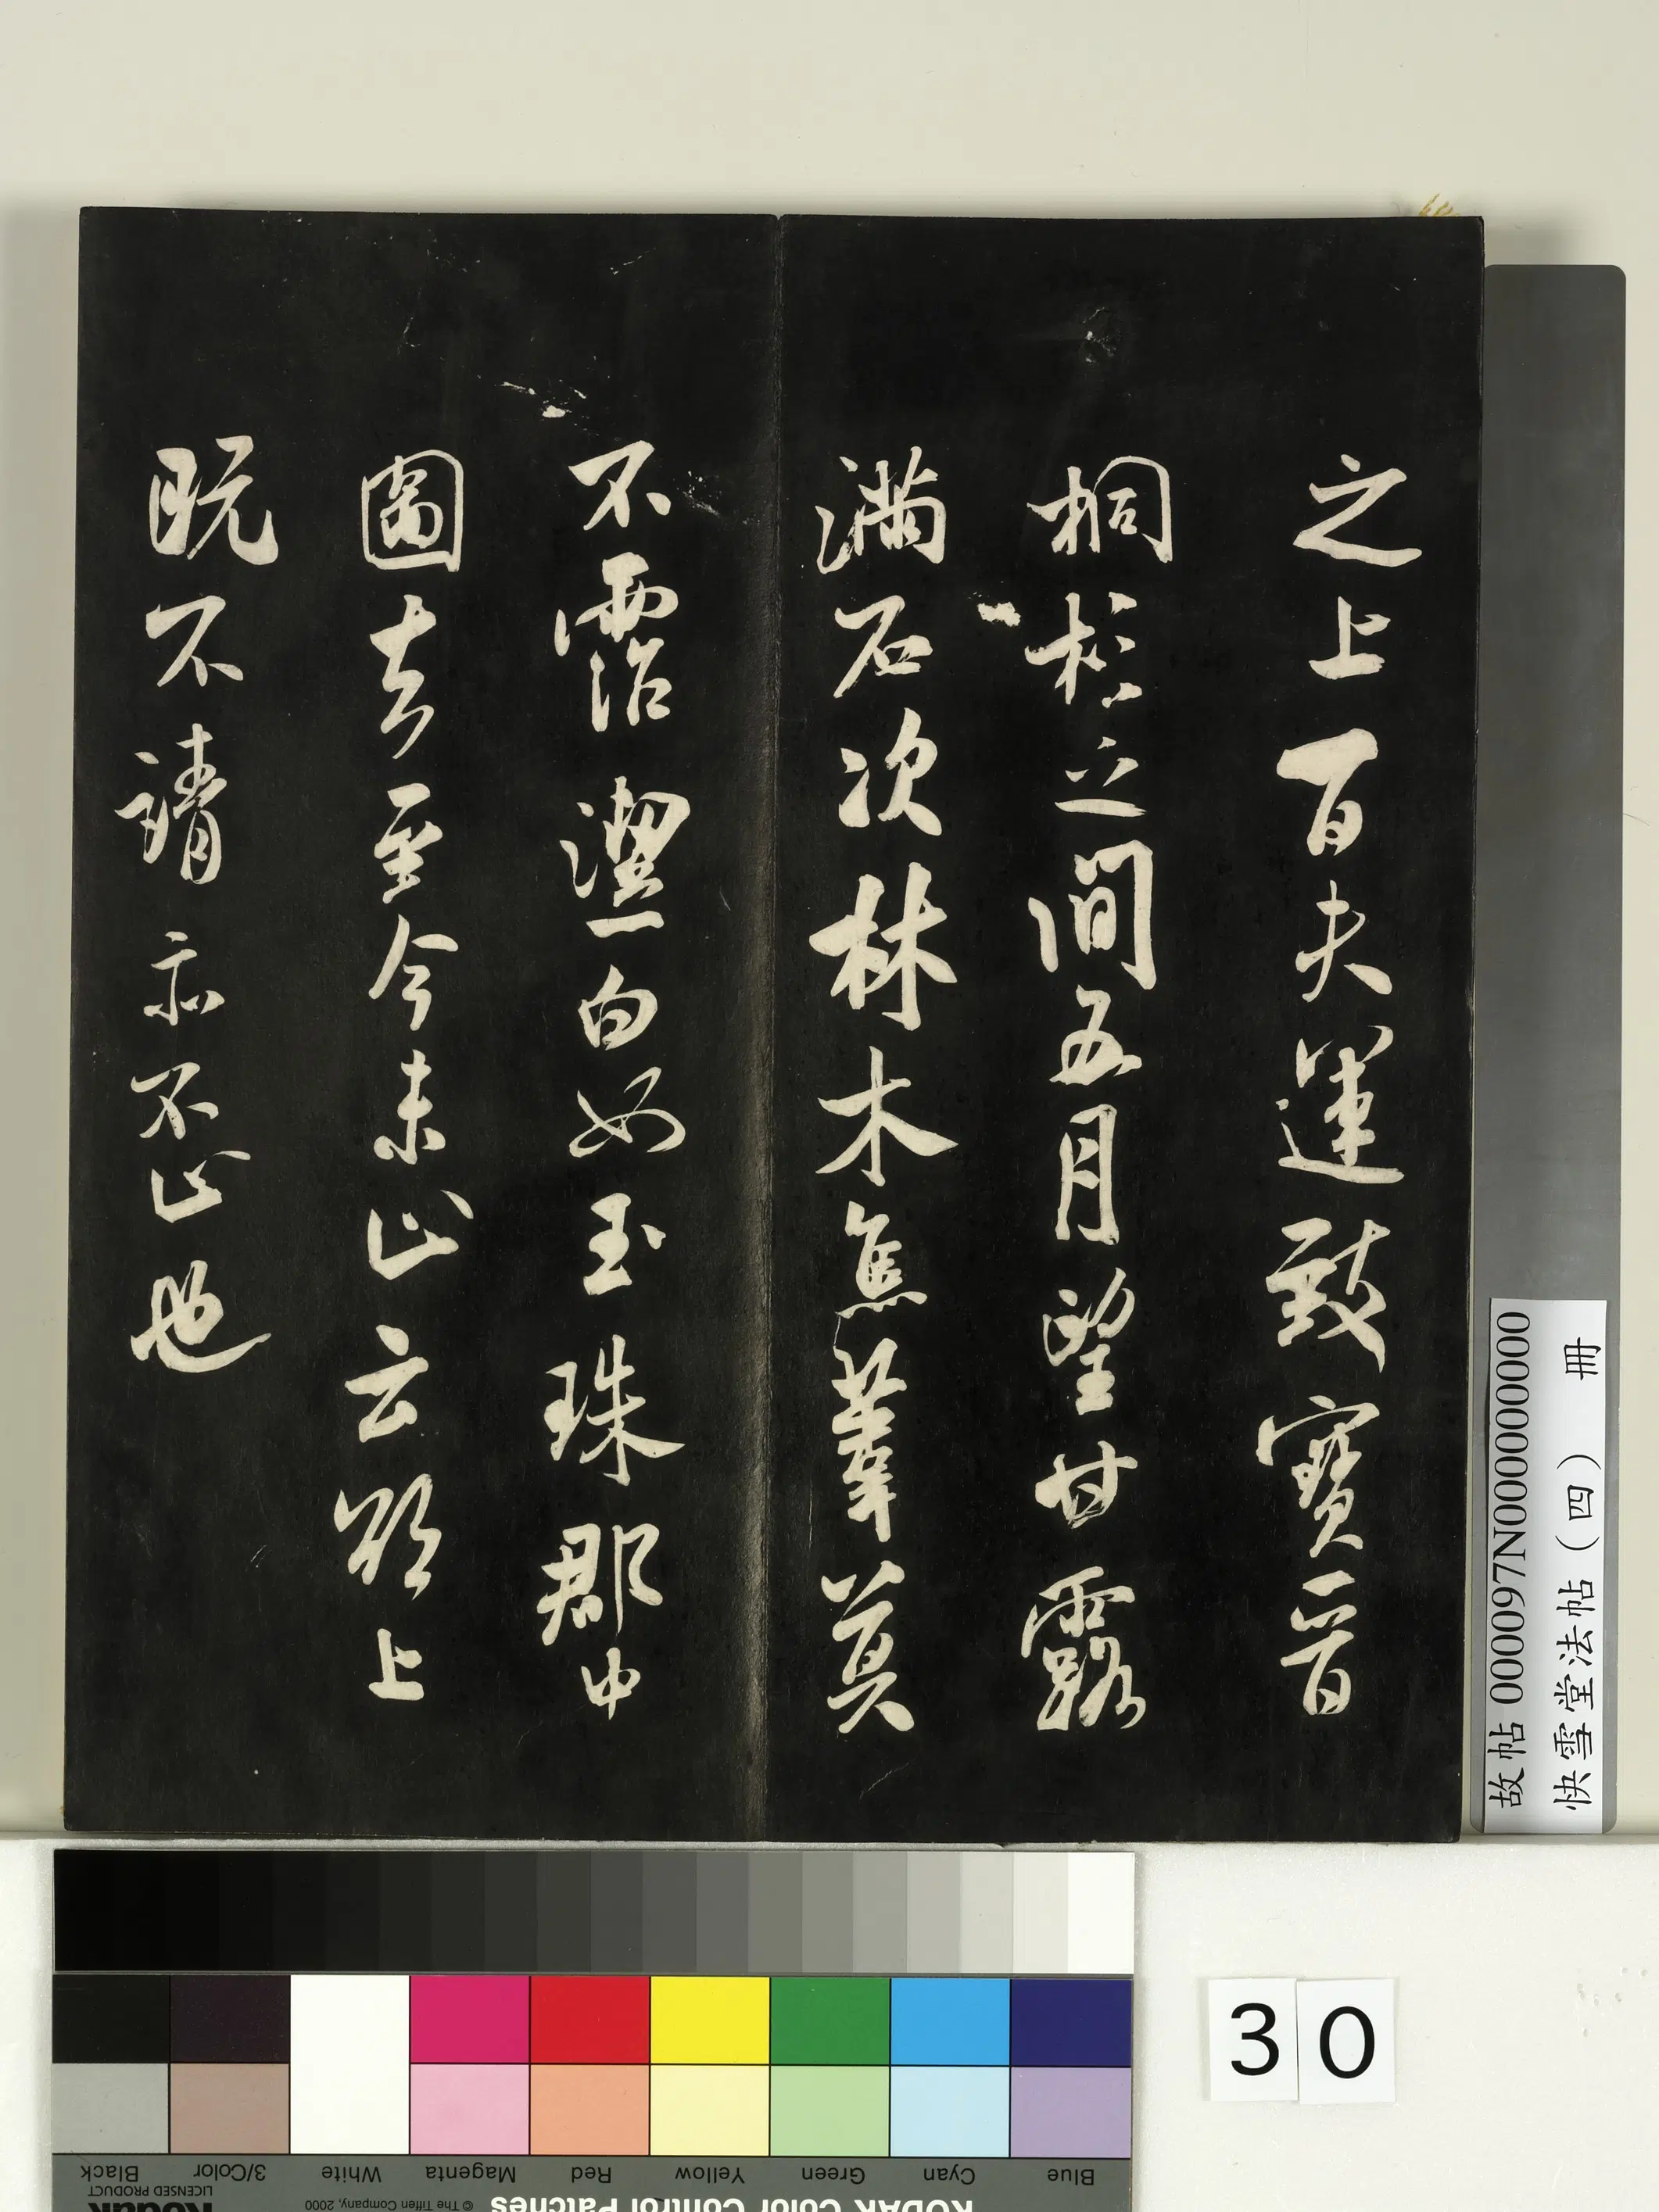 之上百夫運致寶晉
桐杉之間五月望甘露
滿石次林木焦葦莫
不霑潔白如玉珠郡中
圖去至今未止云欲上
既不請亦不止也
故帖 000097N000000000
快雪堂法帖(四) 冊
30
Black
3/Color
White
Magenta
Red
Yellow
Green
Cyan
Blue
Kodak
LICENSED PRODUCT
© The Tiffen Company, 2000
KODAK Color Control Patches